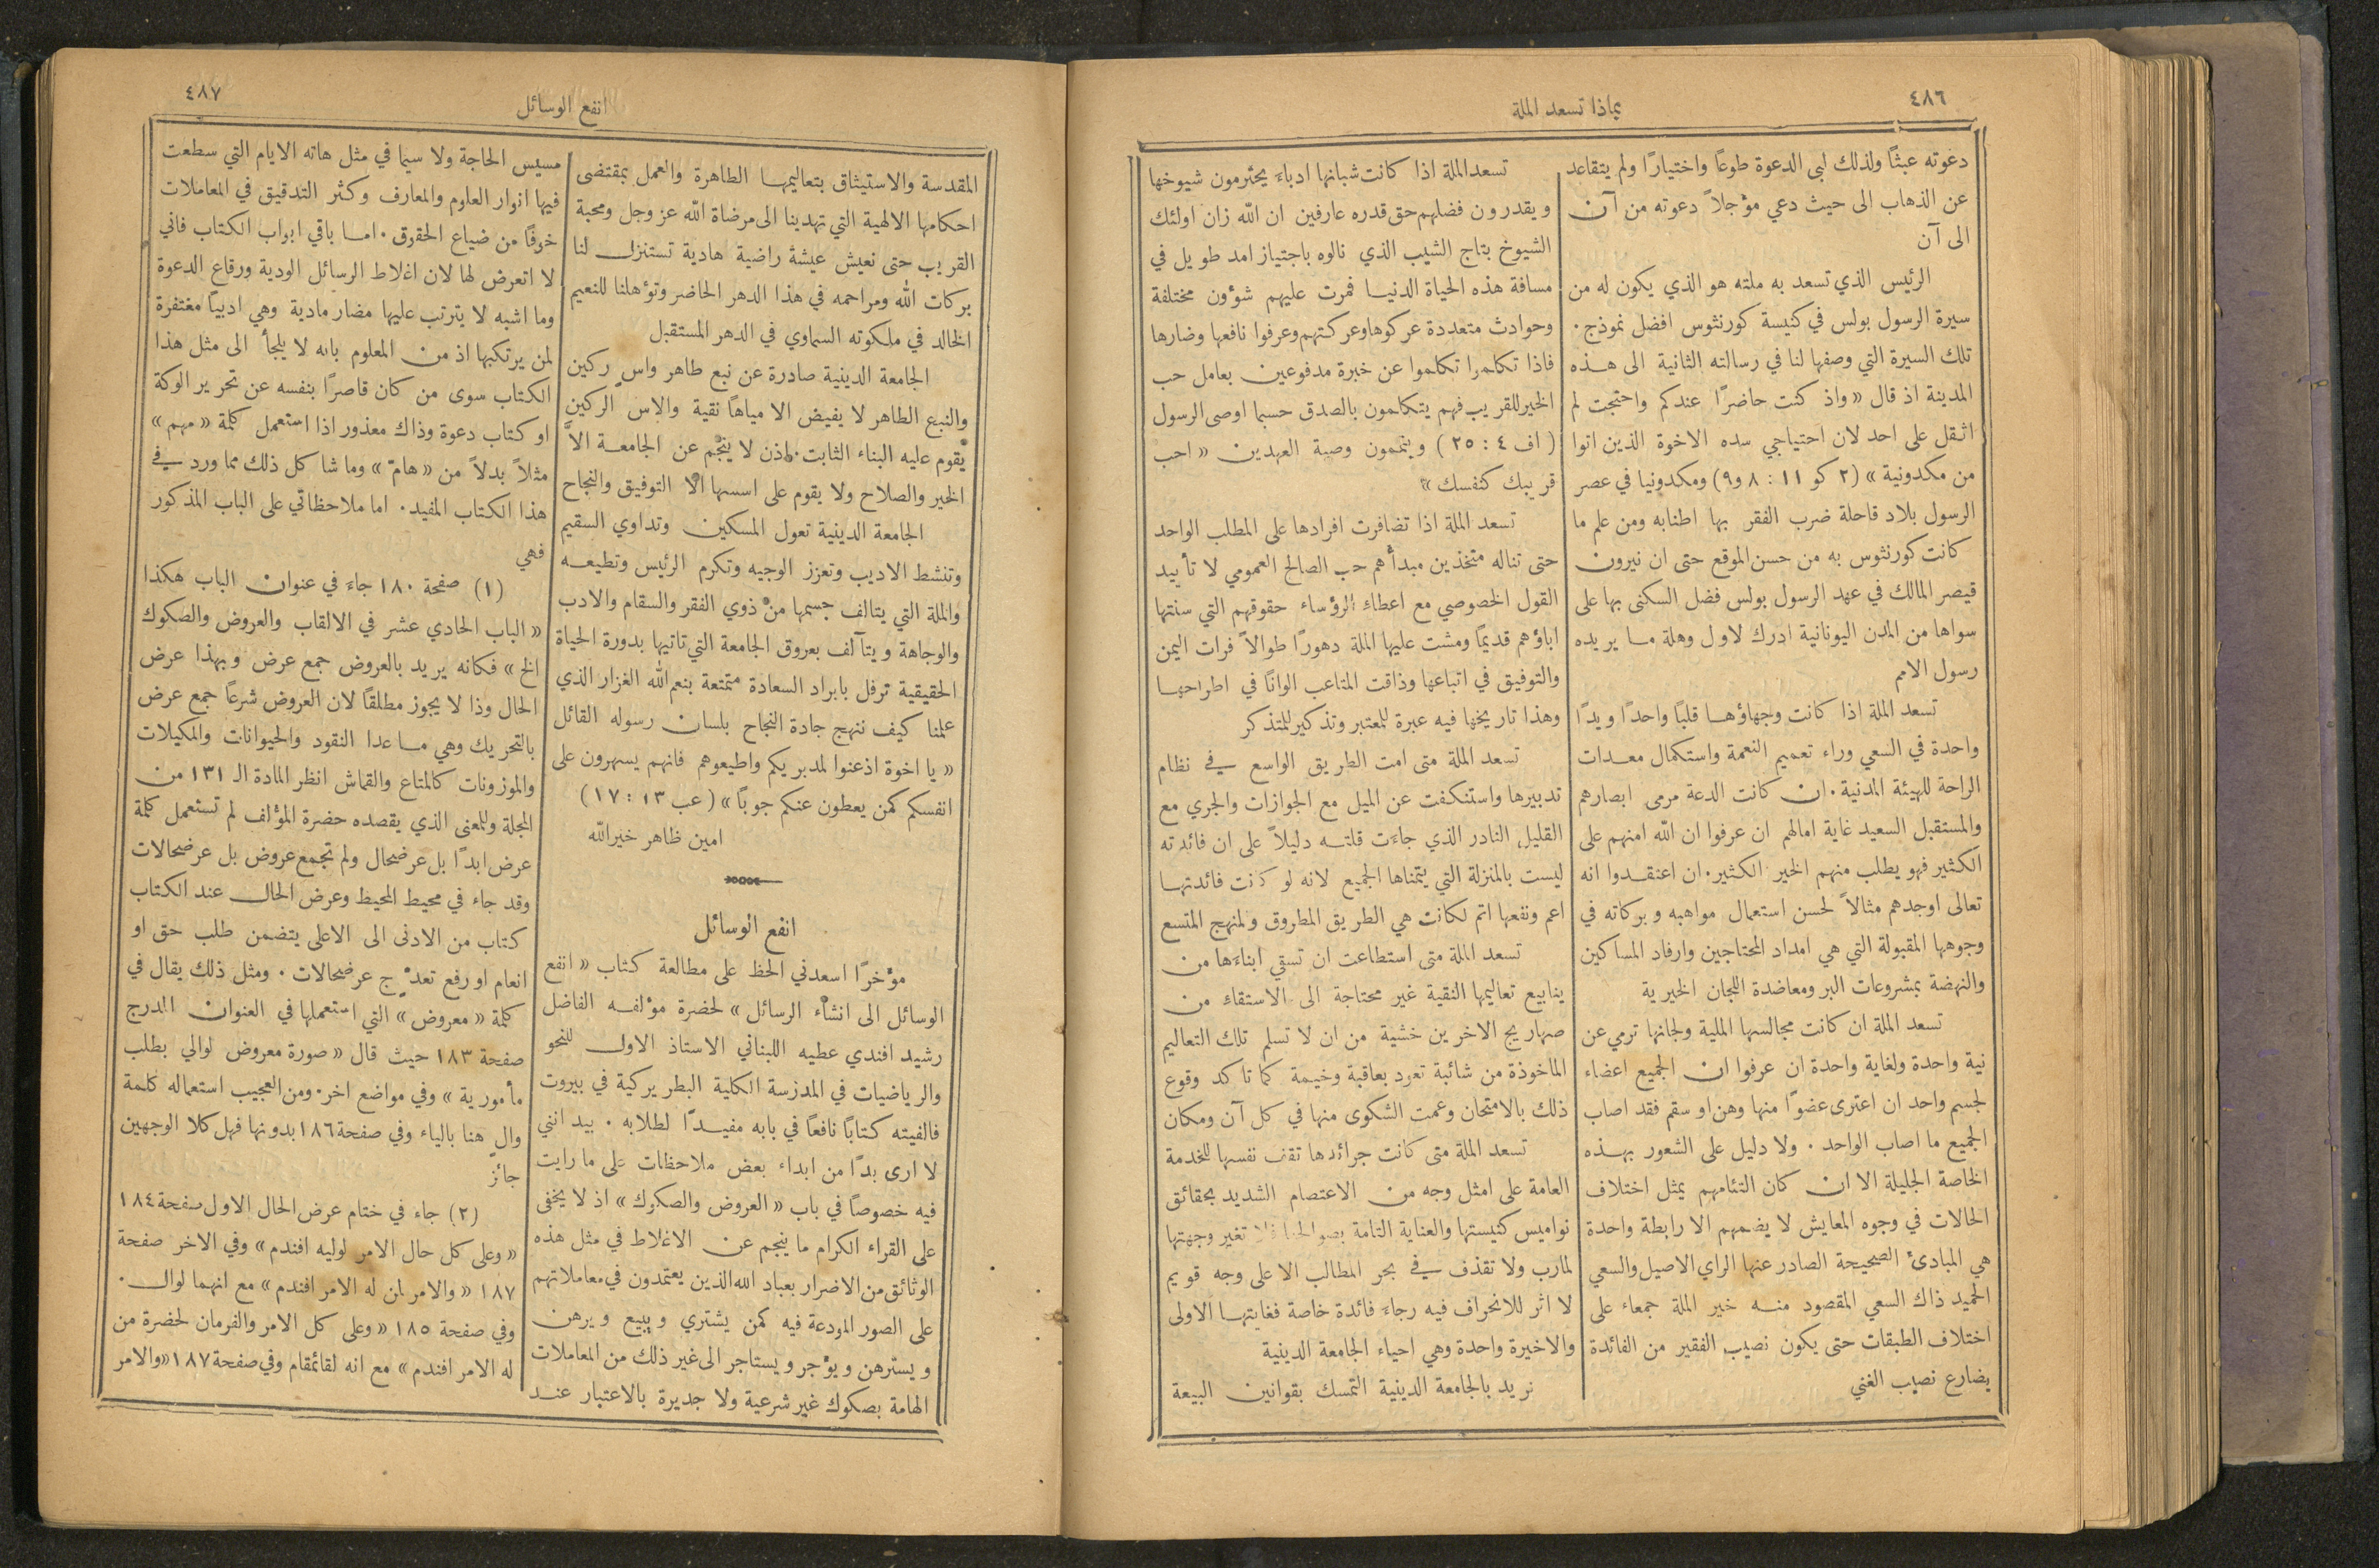 ٤٨٦
بماذا تسعد الملة
دعوته عبثًا ولذلك لبى الدعوة طوعًا واختيارًا ولم يتقاعد
عن الذهاب الى حيث دعي مؤجلاً دعوته من آن
الى آن
الرئيس الذي تسعد به ملته هو الذي يكون له من
سيرة الرسول بولس في كنيسة كورنثوس افضل نموذج.
تلك السيرة التي وصفها لنا في رسالته الثانية الى هذه
المدينة اذ قال «واذ كنت حاضرًا عندكم واحتجت لم
اثقل على احد لان احتياجي سده الاخوة الذين اتوا
من مكدونية» (٢ كو ١١ : ٨ و٩) ومكدونيا في عصر
الرسول بلاد قاحلة ضرب الفقر بها اطنابه ومن علم ما
كانت كورنثوس به من حسن الموقع حتى ان نيرون
قيصر المالك في عهد الرسول بولس فضل السكنى بها على
سواها من المدن اليونانية ادرك لاول وهلة ما يريده
رسول الامم
تسعد الملة اذا كانت وجهاؤها قلبًا واحدًا ويدًا
واحدة في السعي وراء تعميم النعمة واستكمال معدات
الراحة للهيئة المدنية. ان كانت الدعة مرمى ابصارهم
والمستقبل السعيد غاية امالهم ان عرفوا ان الله امنهم على
الكثير فهو يطلب منهم الخير الكثير. ان اعتقدوا انه
تعالى اوجدهم مثالاً لحسن استعمال مواهبه وبركاته في
وجوهها المقبولة التي هي امداد المحتاجين وارفاد المساكين
والنهضة بمشروعات البر ومعاضدة اللجان الخيرية
تسعد الملة ان كانت مجالسها الملية ولجانها ترمي عن
نية واحدة ولغاية واحدة ان عرفوا ان الجميع اعضاء
لجسم واحد ان اعترى عضوًا منها وهن او سقم فقد اصاب
الجميع ما اصاب الواحد. ولا دليل على الشعور بهذه
الخاصة الجليلة الا ان كان التئامهم يمثل اختلاف
الحالات في وجوه المعايش لا يضمهم الا رابطة واحدة
هي المبادئ الصحيحة الصادر عنها الراي الاصيل والسعي
الحميد ذاك السعي المقصود منه خير الملة جمعاء على
اختلاف الطبقات حتى يكون نصيب الفقير من الفائدة
يضارع نصيب الغني
تسعد الملة اذا كانت شبانها ادباء يحترمون شيوخها
ويقدرون فضلهم حق قدره عارفين ان الله زان اولئك
الشيوخ بتاج الشيب الذي نالوه باجتياز امد طويل في
مسافة هذه الحياة الدنيا فمرت عليهم شؤون مختلفة
وحوادث متعددة عركوها وعركتهم وعرفوا نافعها وضارها
فاذا تكلموا تكلموا عن خبرة مدفوعين بعامل حب
الخير للقريب فهم يتكلمون بالصدق حسبما اوصى الرسول
(اف ٤ : ٢٥) ويتممون وصية العهدين «احب
قريبك كنفسك»
تسعد الملة اذا تضافرت افرادها على المطلب الواحد
حتى تناله متخذين مبدأهم حب الصالح العمومي لا تأييد
القول الخصوصي مع اعطاء الرؤساء حقوقهم التي سنتها
اباؤهم قديمًا ومشت عليها الملة دهورًا طوالاً فرات اليمن
والتوفيق في اتباعها وذاقت المتاعب الوانًا في اطراحها
وهذا تاريخها فيه عبرة للمعتبر وتذكير للمتذكر
تسعد الملة متى امت الطريق الواسع في نظام
تدبيرها واستنكفت عن الميل مع الجوازات والجري مع
القليل النادر الذي جاءت قلته دليلاً على ان فائدته
ليست بالمنزلة التي يتمناها الجميع لانه لو كانت فائدتها
اعم ونفعها اتم لكانت هي الطريق المطروق والمنهج المتسع
تسعد الملة متى استطاعت ان تسقي ابناءها من
ينابيع تعاليمها النقية غير محتاجة الى الاستقاء من
صهاريج الاخرين خشية من ان لا تسلم تلك التعاليم
الماخوذة من شائبة تعود بعاقبة وخيمة كما تاكد وقوع
ذلك بالامتحان وعمت الشكوى منها في كل آن ومكان
تسعد الملة متى كانت جرائدها تقف نفسها للخدمة
العامة على امثل وجه من الاعتصام الشديد بحقائق
نواميس كنيستها والعناية التامة بصوالحها فلا تغير وجهتها
لمارب ولا تقذف في بحر المطالب الا على وجه قويم
لا اثر للانحراف فيه رجاء فائدة خاصة فغايتها الاولى
والاخيرة واحدة وهي احياء الجامعة الدينية
نريد بالجامعة الدينية التمسك بقوانين البيعة
انفع الوسائل
٤٨٧
المقدسة والاستيثاق بتعاليمها الطاهرة والعمل بمقتضى
احكامها الالهية التي تهدينا الى مرضاة الله عز وجل ومحبة
القريب حتى نعيش عيشة راضية هادية تستنزل لنا
بركات الله ومراحمه في هذا الدهر الحاضر وتؤهلنا للنعيم
الخالد في ملكوته السماوي في الدهر المستقبل
الجامعة الدينية صادرة عن نبع طاهر واسٍ ركين
والنبع الطاهر لا يفيض الا مياهًا نقية والاس الركين
يقوم عليه البناء الثابت. اذن لا ينجم عن الجامعة الاَّ
الخير والصلاح ولا يقوم على اسسها الا التوفيق والنجاح
الجامعة الدينية تعول المسكين وتداوي السقيم
وتنشط الاديب وتعزز الوجيه وتكرم الرئيس وتطيعه
والملة التي يتالف جسمها من ذوي الفقر والسقام والادب
والوجاهة ويتآلف بعروق الجامعة التي تاتيها بدورة الحياة
الحقيقية ترفل بابراد السعادة متمتعة بنعم الله الغزار الذي
علمنا كيف ننهج جادة النجاح بلسان رسوله القائل
«يا اخوة اذعنوا لمدبريكم واطيعوهم فانهم يسهرون على
انفسكم كمن يعطون عنكم جوبًا» (عب ١٣ : ١٧)
امين ظاهر خير الله
انفع الوسائل
مؤخرًا اسعدني الحظ على مطالعة كتاب «انفع
الوسائل الى انشاء الرسائل» لحضرة مؤلفه الفاضل
رشيد افندي عطيه اللبناني الاستاذ الاول للنحو
والرياضيات في المدرسة الكلية البطريركية في بيروت
فالفيته كتابًا نافعًا في بابه مفيدًا لطلابه. بيد انني
لا ارى بدًا من ابداء بعض ملاحظات على ما رايت
فيه خصوصًا في باب «العروض والصكوك» اذ لا يخفى
على القراء الكرام ما ينجم عن الاغلاط في مثل هذه
الوثائق من الاضرار بعباد الله الذين يعتمدون في معاملاتهم
على الصور المودعة فيه كمن يشتري ويبيع ويرهن
ويسترهن ويؤجر ويستاجر الى غير ذلك من المعاملات
الهامة بصكوك غير شرعية ولا جديرة بالاعتبار عند
مسيس الحاجة ولا سيما في مثل هاته الايام التي سطعت
فيها انوار العلوم والمعارف وكثر التدقيق في المعاملات
خوفًا من ضياع الحقوق. اما باقي ابواب الكتاب فاني
لا اتعرض لها لان اغلاط الرسائل الودية ورقاع الدعوة
وما اشبه لا يترتب عليها مضار مادية وهي ادبيًا مغتفرة
لمن يرتكبها اذ من المعلوم بانه لا يلجأ الى مثل هذا
الكتاب سوى من كان قاصرًا بنفسه عن تحرير الوكة
او كتاب دعوة وذاك معذور اذا استعمل كلمة «مهم»
مثلاً بدلاً من «هامّ» وما شا كل ذلك مما ورد في
هذا الكتاب المفيد. اما ملاحظاتي على الباب المذكور
فهي
(١) صفحة ١٨٠ جاء في عنوان الباب هكذا
«الباب الحادي عشر في الالقاب والعروض والصكوك
الخ» فكانه يريد بالعروض جمع عرض وبهذا عرض
الحال وذا لا يجوز مطلقًا لان العروض شرعًا جمع عرض
بالتحريك وهي ما عدا النقود والحيوانات والمكيلات
والموزونات كالمتاع والقماش انظر المادة الـ ١٣١ من
المجلة وللمعنى الذي يقصده حضرة المؤلف لم تستعمل كلمة
عرض ابدًا بل عرضحال ولم تجمع عروض بل عرضحالات
وقد جاء في محيط المحيط وعرض الحال عند الكتاب
كتاب من الادنى الى الاعلى يتضمن طلب حق او
انعام او رفع تعدٍّ ج عرضحالات. ومثل ذلك يقال في
كلمة «معروض» التي استعملها في العنوان المدرج
صفحة ١٨٣ حيث قال «صورة معروض لوالي بطلب
مأمورية» وفي مواضع اخر. ومن العجيب استعماله كلمة
والٍ هنا بالياء وفي صفحة ١٨٦ بدونها فهل كلا الوجهين
جائز
(٢) جاء في ختام عرض الحال الاول صفحة ١٨٤
«وعلى كل حال الامر لوليه افندم» وفي الاخر صفحة
١٨٧ «والامر لمن له الامر افندم» مع انهما لوال.
وفي صفحة ١٨٥ «وعلى كل الامر والفرمان لحضرة من
له الامر افندم» مع انه لقائمقام وفي صفحة ١٨٧ «والامر